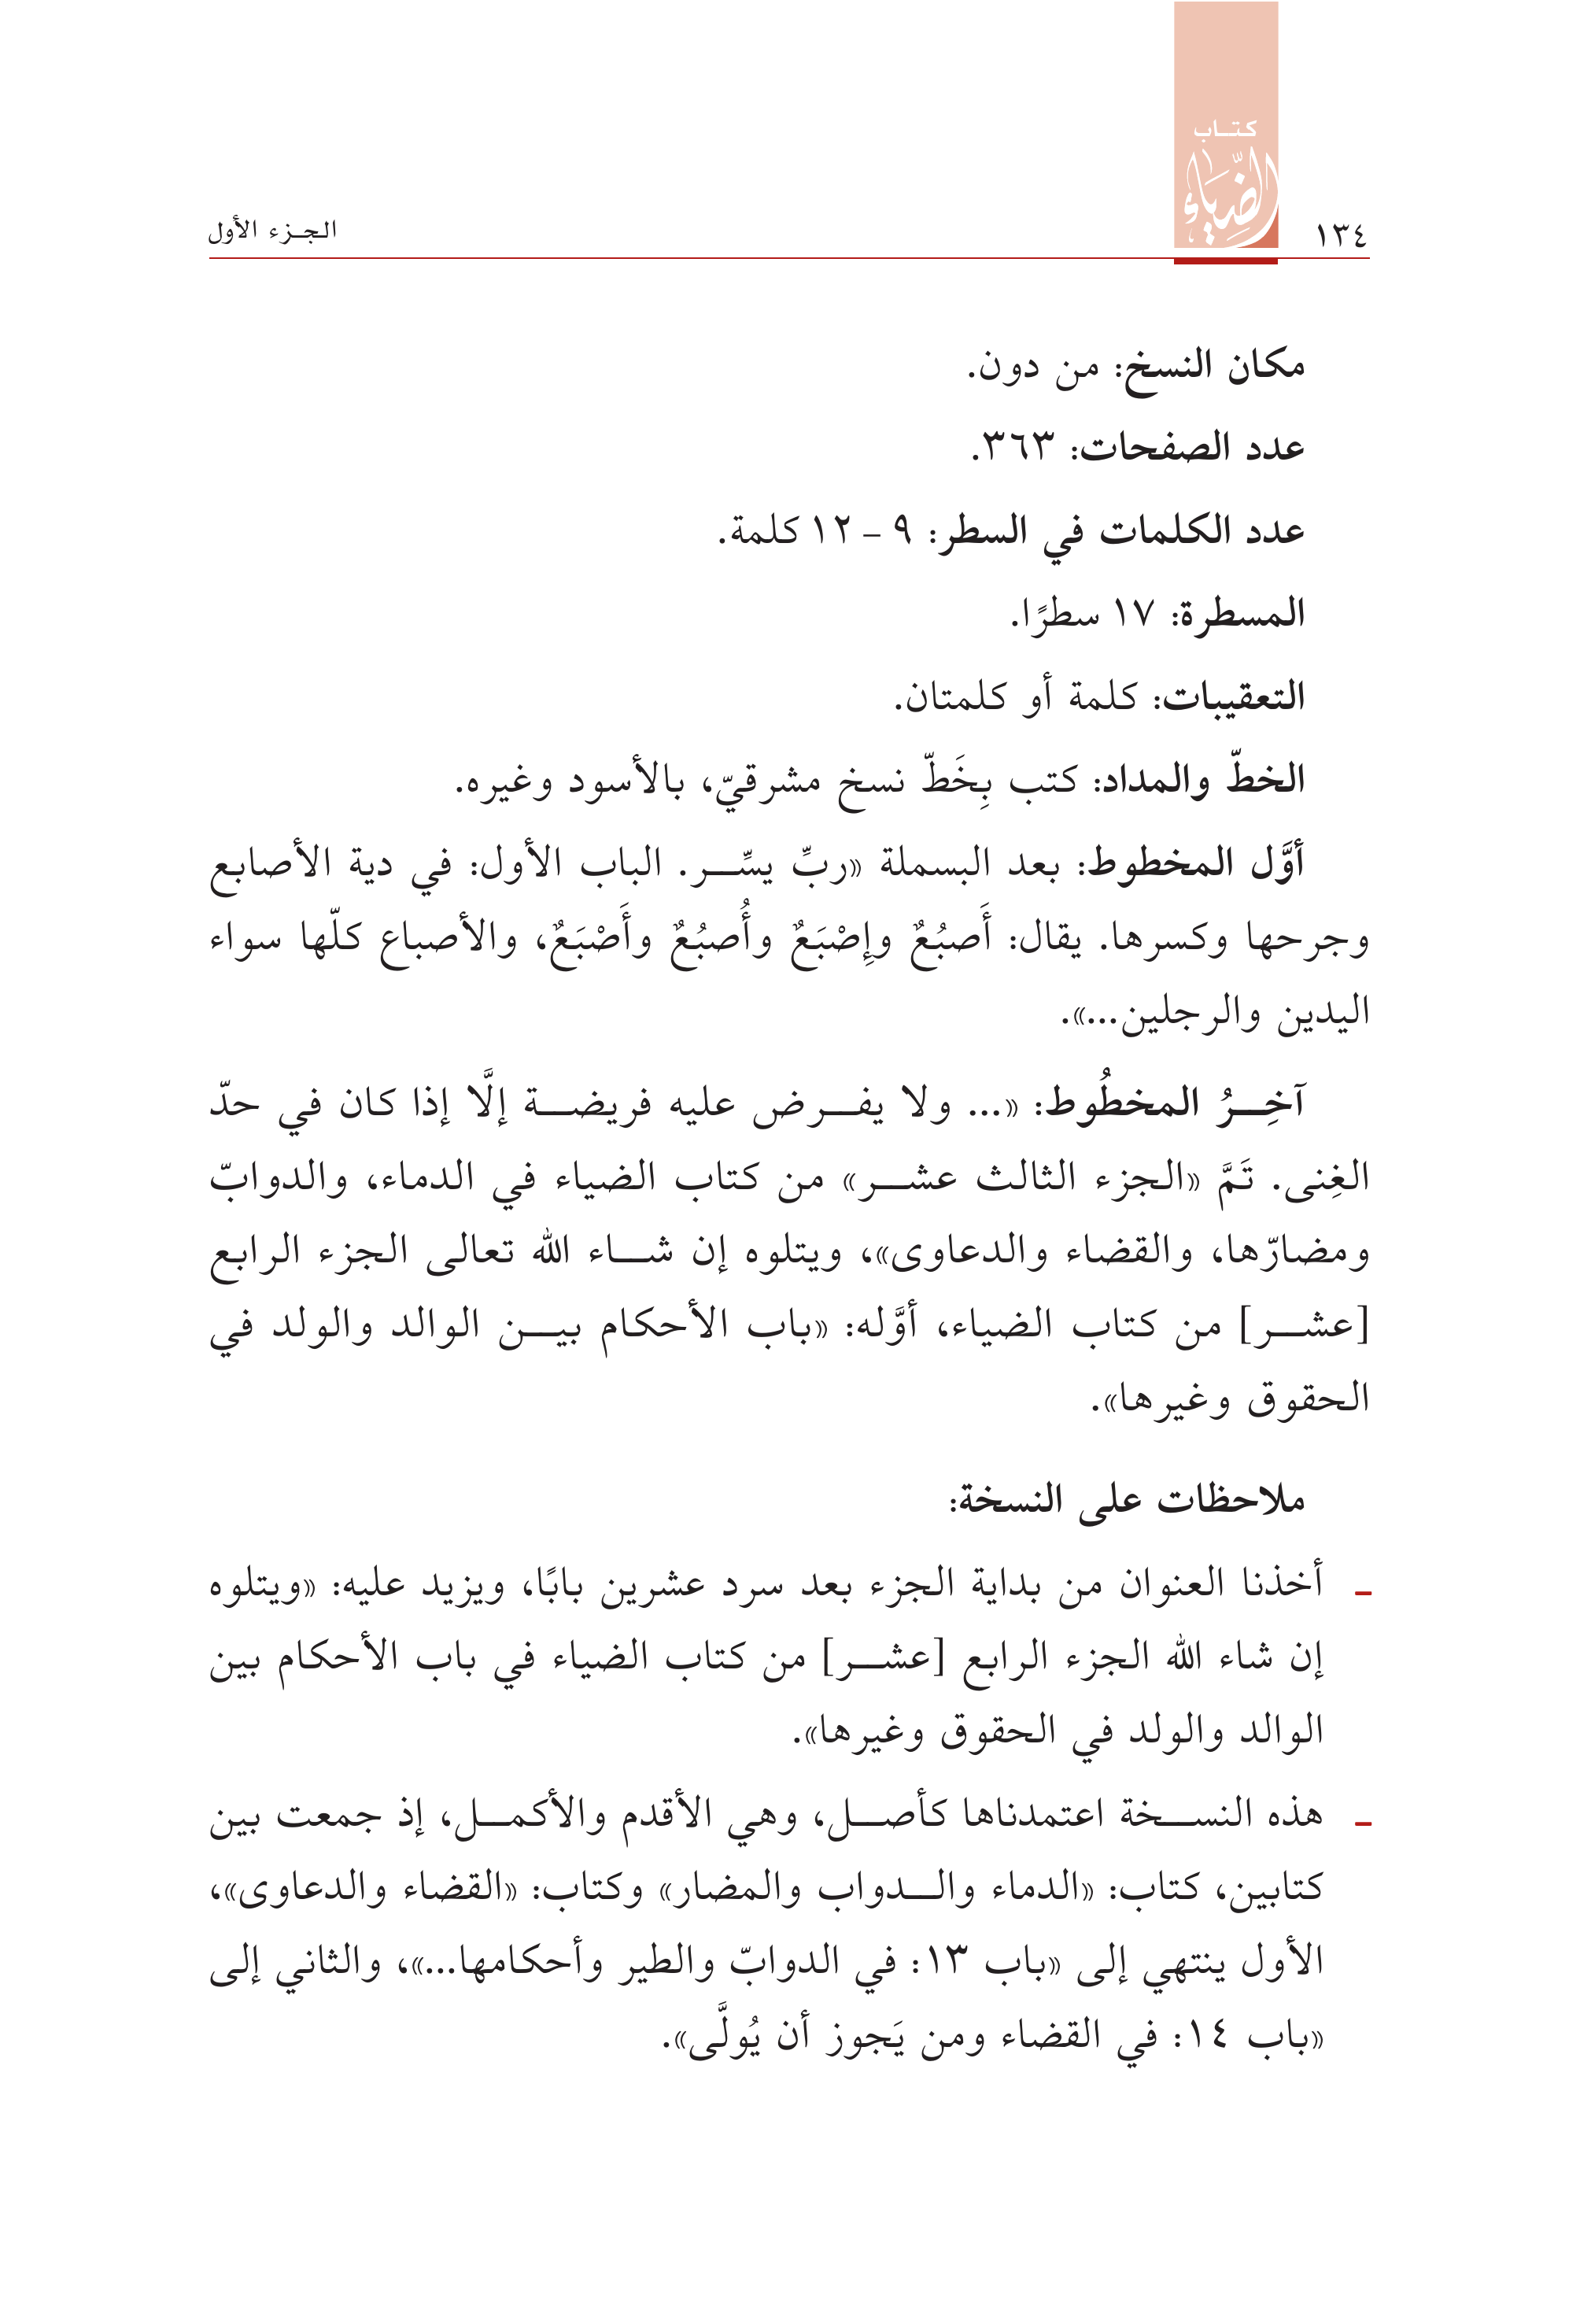 ١٣٤
كتاب
الضِّيَاء
الجزء الأول
مكان النسخ: من دون.
عدد الصفحات: ٣٦٣.
عدد الكلمات في السطر: ٩ - ١٢ كلمة.
المسطرة: ١٧ سطرًا.
التعقيبات: كلمة أو كلمتان.
الخطّ والمداد: كتب بِخَطّ نسخ مشرقيّ، بالأسود وغيره.
أوَّل المخطوط: بعد البسملة «ربِّ يسِّر. الباب الأول: في دية الأصابع
وجرحها وكسرها. يقال: أَصبُعٌ وإِصْبَعٌ وأُصبُعٌ وأَصْبَعٌ، والأصباع كلّها سواء
اليدين والرجلين...».
آخِرُ المخطُوط: «... ولا يفرض عليه فريضة إلَّا إذا كان في حدّ
الغِنى. تَمَّ «الجزء الثالث عشر» من كتاب الضياء في الدماء، والدوابّ
ومضارّها، والقضاء والدعاوى»، ويتلوه إن شاء الله تعالى الجزء الرابع
[عشر] من كتاب الضياء، أوَّله: «باب الأحكام بين الوالد والولد في
الحقوق وغيرها».
ملاحظات على النسخة:
ـ أخذنا العنوان من بداية الجزء بعد سرد عشرين بابًا، ويزيد عليه: «ويتلوه
إن شاء الله الجزء الرابع [عشر] من كتاب الضياء في باب الأحكام بين
الوالد والولد في الحقوق وغيرها».
ـ هذه النسخة اعتمدناها كأصل، وهي الأقدم والأكمل، إذ جمعت بين
كتابين، كتاب: «الدماء والدواب والمضار» وكتاب: «القضاء والدعاوى»،
الأول ينتهي إلى «باب ١٣: في الدوابّ والطير وأحكامها...»، والثاني إلى
«باب ١٤: في القضاء ومن يَجوز أن يُولَّى».